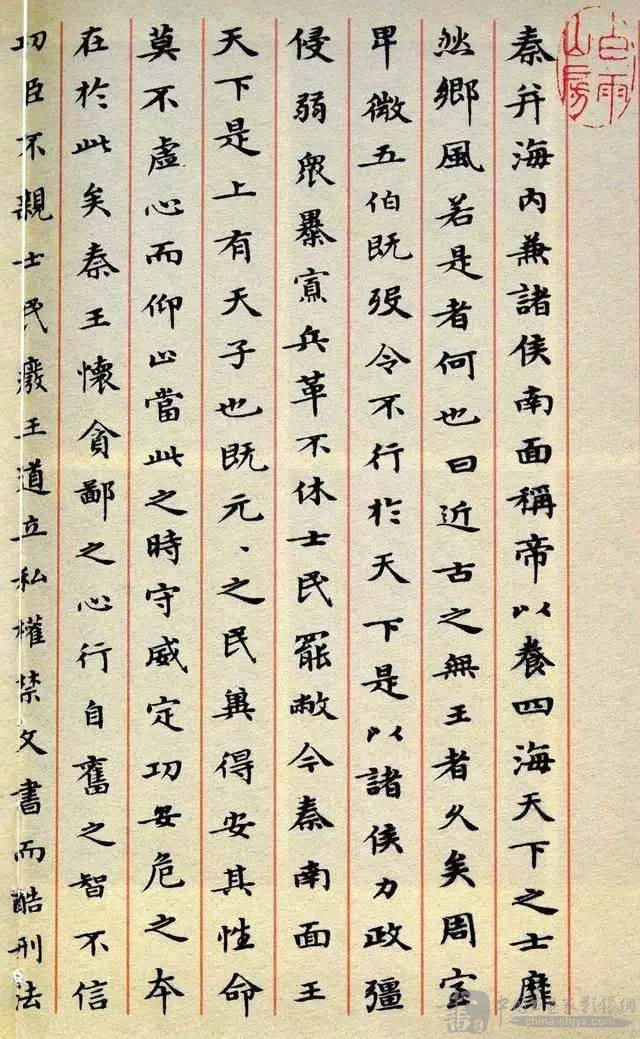 白雨
山房
秦并海内兼諸侯南面稱帝以養四海天下之士靡
然鄉風若是者何也曰近古之無王者久矣周室
卑微五伯既歿令不行於天下是以諸侯力政彊
侵弱眾暴寡兵革不休士民罷敝今秦南面王
天下是上有天子也既元、之民兾得安其性命
莫不虛心而仰上當此之時守威定功安危之本
在於此矣秦王懷貪鄙之心行自奮之智不信
功臣不親士民廢王道立私權禁文書而酷刑法
china-shjyx.com